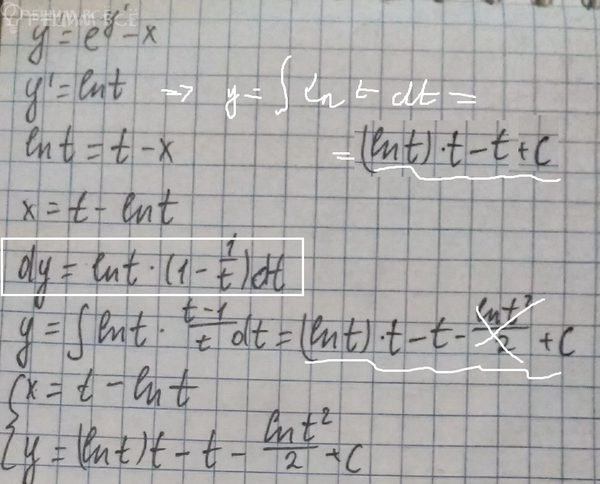 РЕШИМ ВСЕ
y = e^y' - x
y' = ln t → y = ∫ ln t dt =
ln t = t - x = (ln t)·t - t + C
x = t - ln t
dy = ln t · (1 - 1/t) dt
y = ∫ ln t · (t-1)/t dt = (ln t)·t - t - ln t²/2 + C
{ x = t - ln t
y = (ln t)t - t - ln t²/2 + C